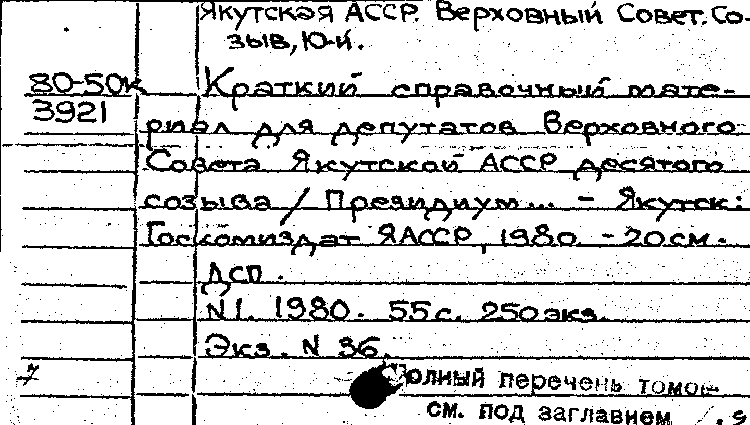 Якутская АССР. Верховный Совет. Со-
зыв, 10-й.
80-50к
3921
Краткий справочный мате-
риал для депутатов Верховного
Совета Якутской АССР десятого
созыва / Президиум... - Якутск:
Госкомиздат ЯАССР, 1980. - 20см.
ДСП.
N1. 1980. 55с. 250экз.
Экз. N 36.
Полный перечень томов
см. под заглавием